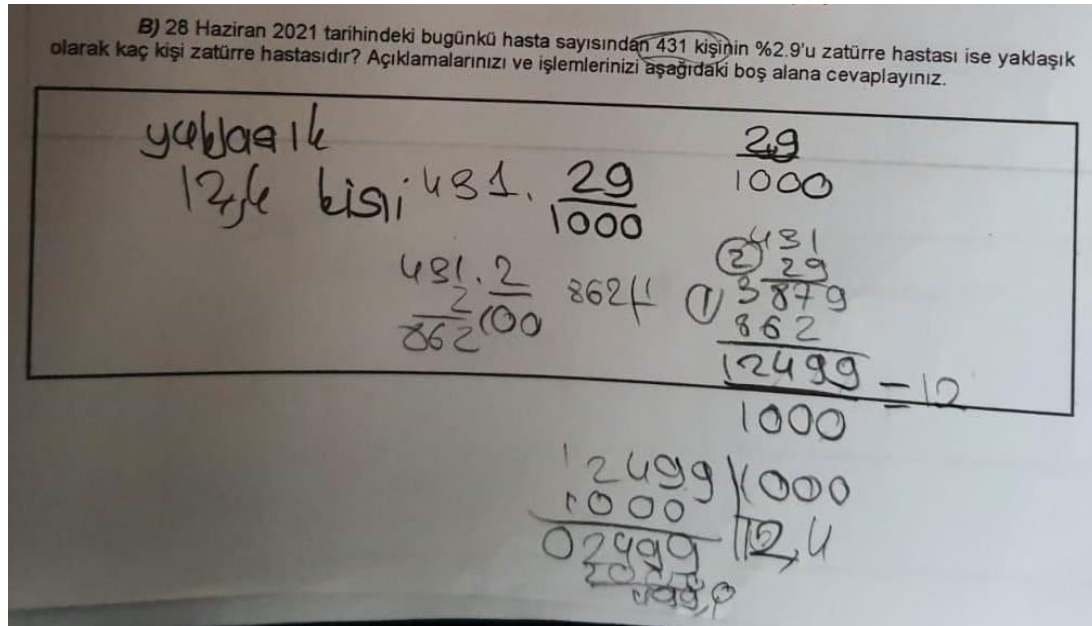 B) 28 Haziran 2021 tarihindeki bugünkü hasta sayısından 431 kişinin %2.9'u zatürre hastası ise yaklaşık
olarak kaç kişi zatürre hastasıdır? Açıklamalarınızı ve işlemlerinizi aşağıdaki boş alana cevaplayınız.
yaklaşık
12,4 kişi 431. 29/1000
29/1000
431. 2/100
2
862
862
② 431
29
① 3879
862
12499/1000 = 12
12499 1000
1000 12,4
02499